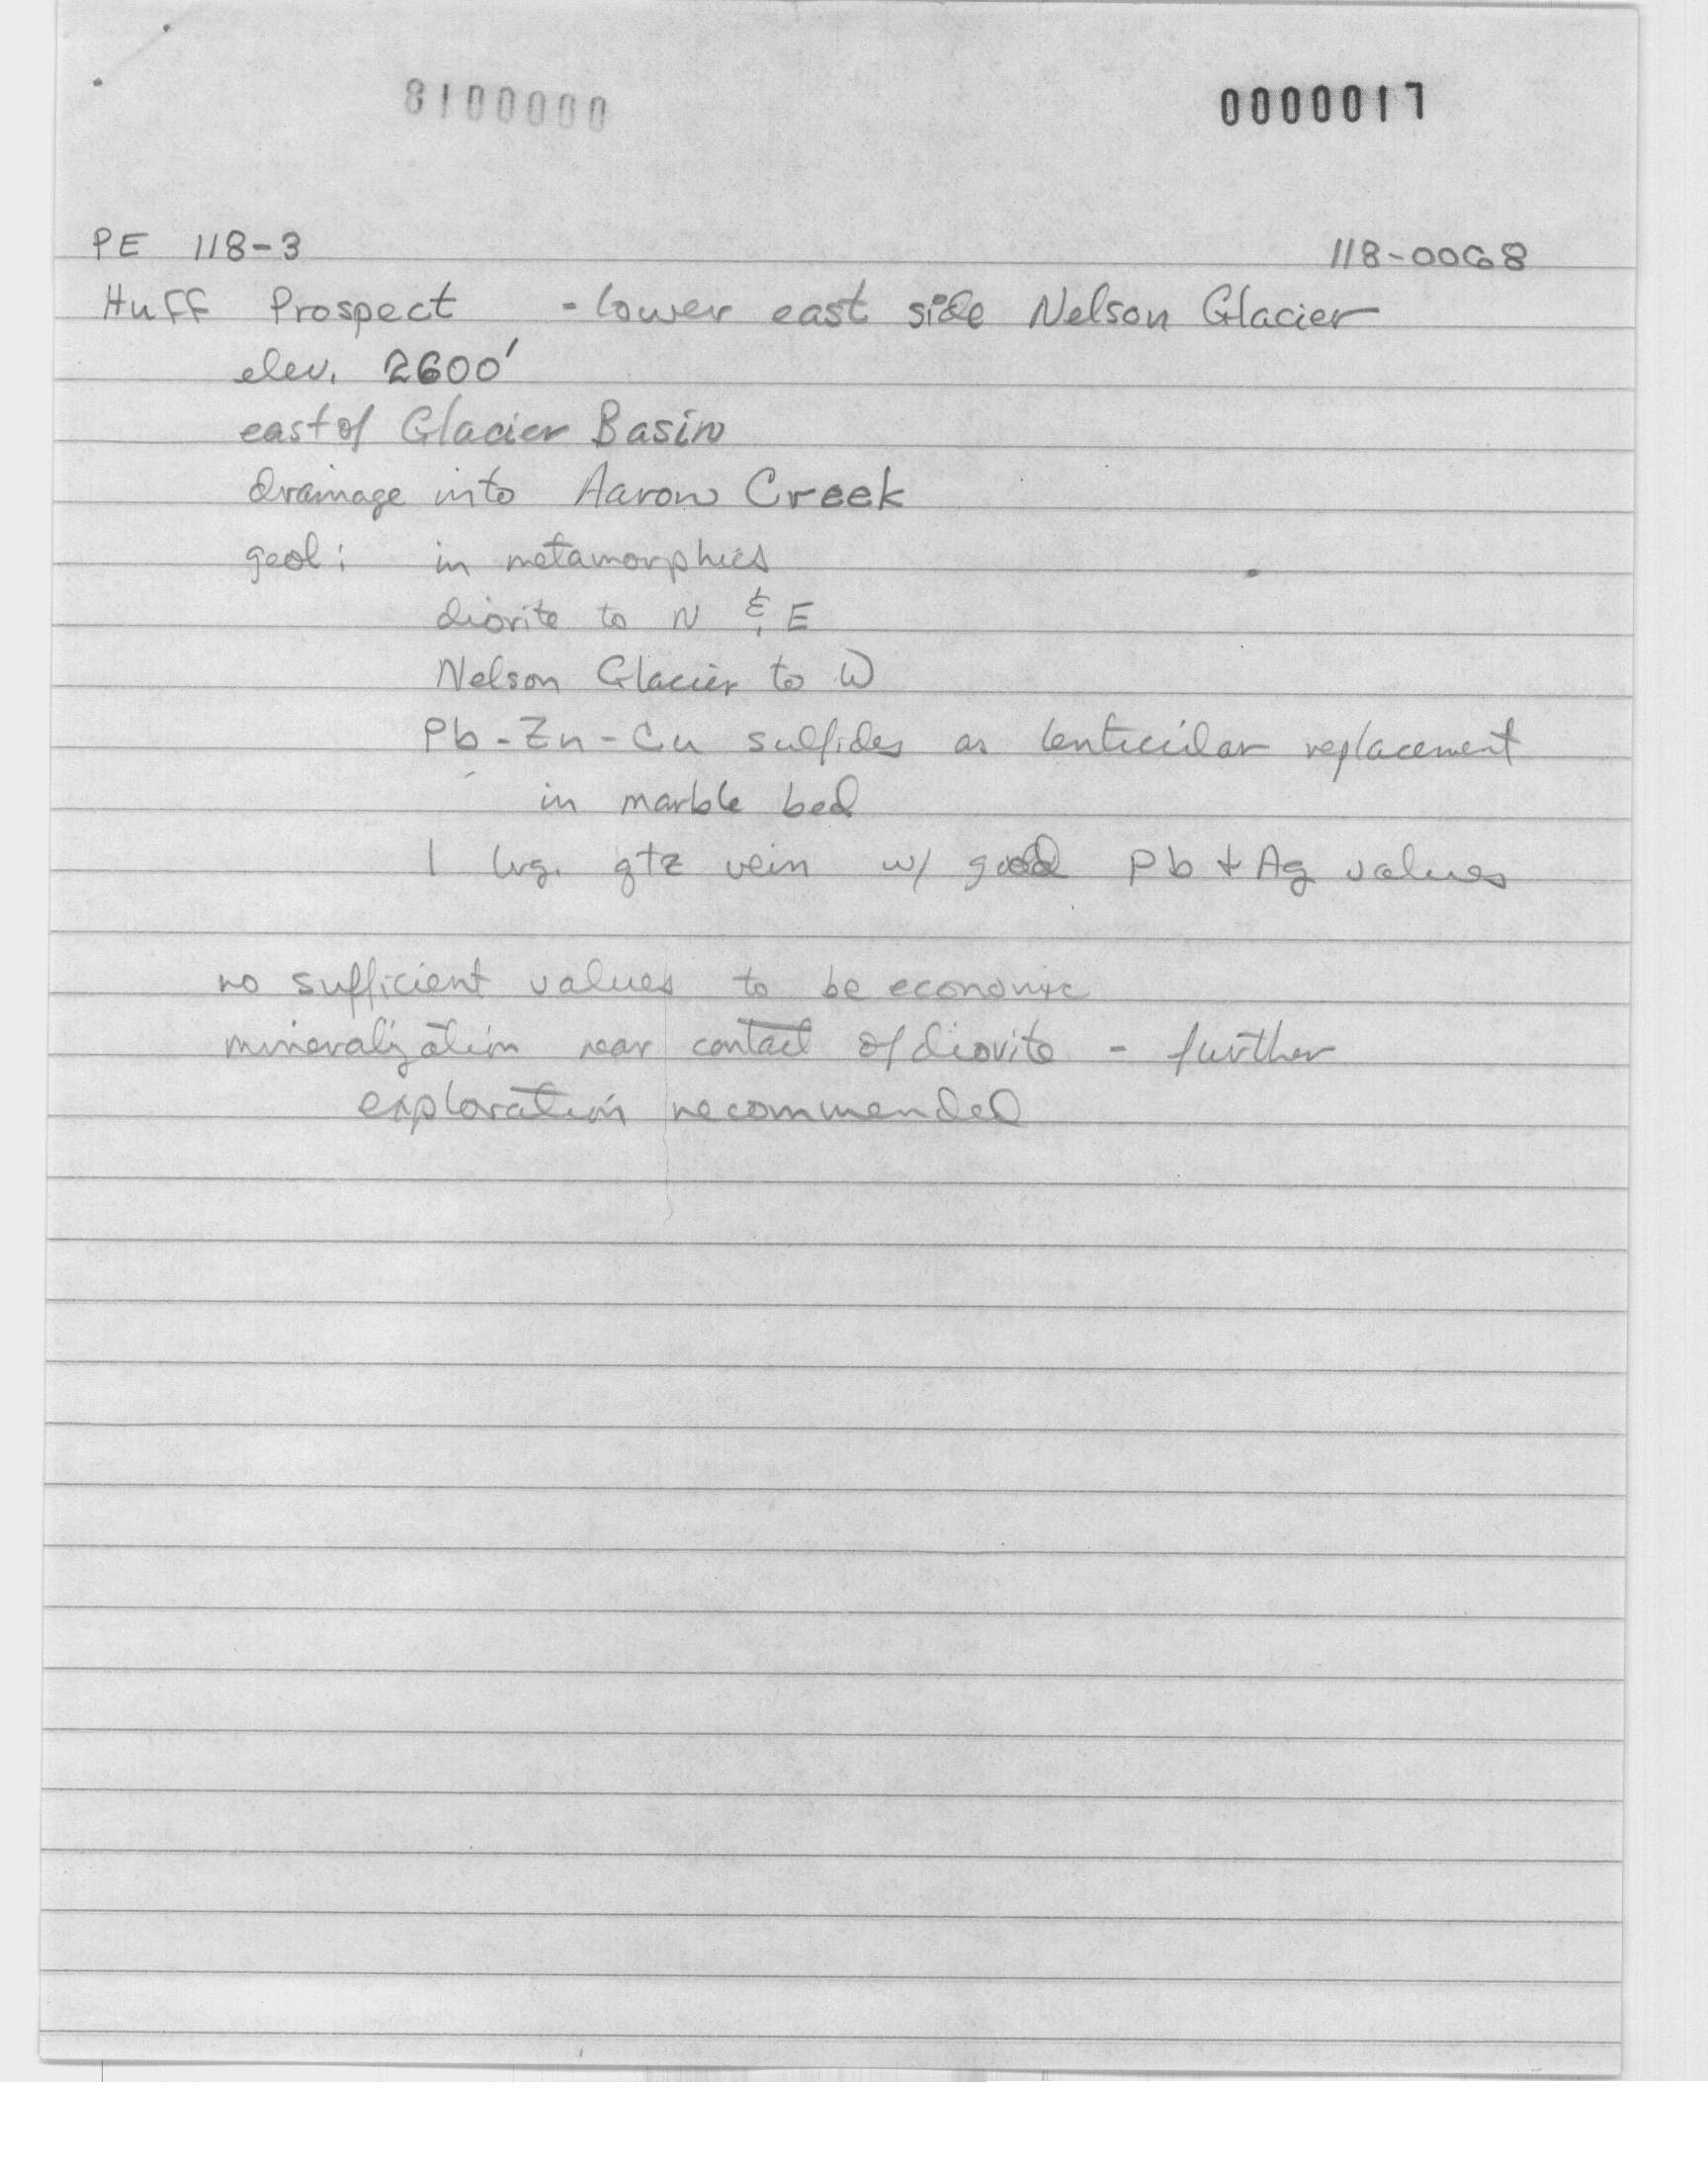 8100000 0000017
PE 118-3 118-0068
Huff Prospect - lower east side Nelson Glacier
elev. 2600'
east of Glacier Basin
drainage into Aaron Creek
geol: in metamorphics
diorite to N & E
Nelson Glacier to W
Pb-Zn-Cu sulfides as lenticular replacement
in marble bed
1 lrg. qtz vein w/ good Pb + Ag values
no sufficient values to be economic
mineralization near contact of diorite - further
exploration recommended